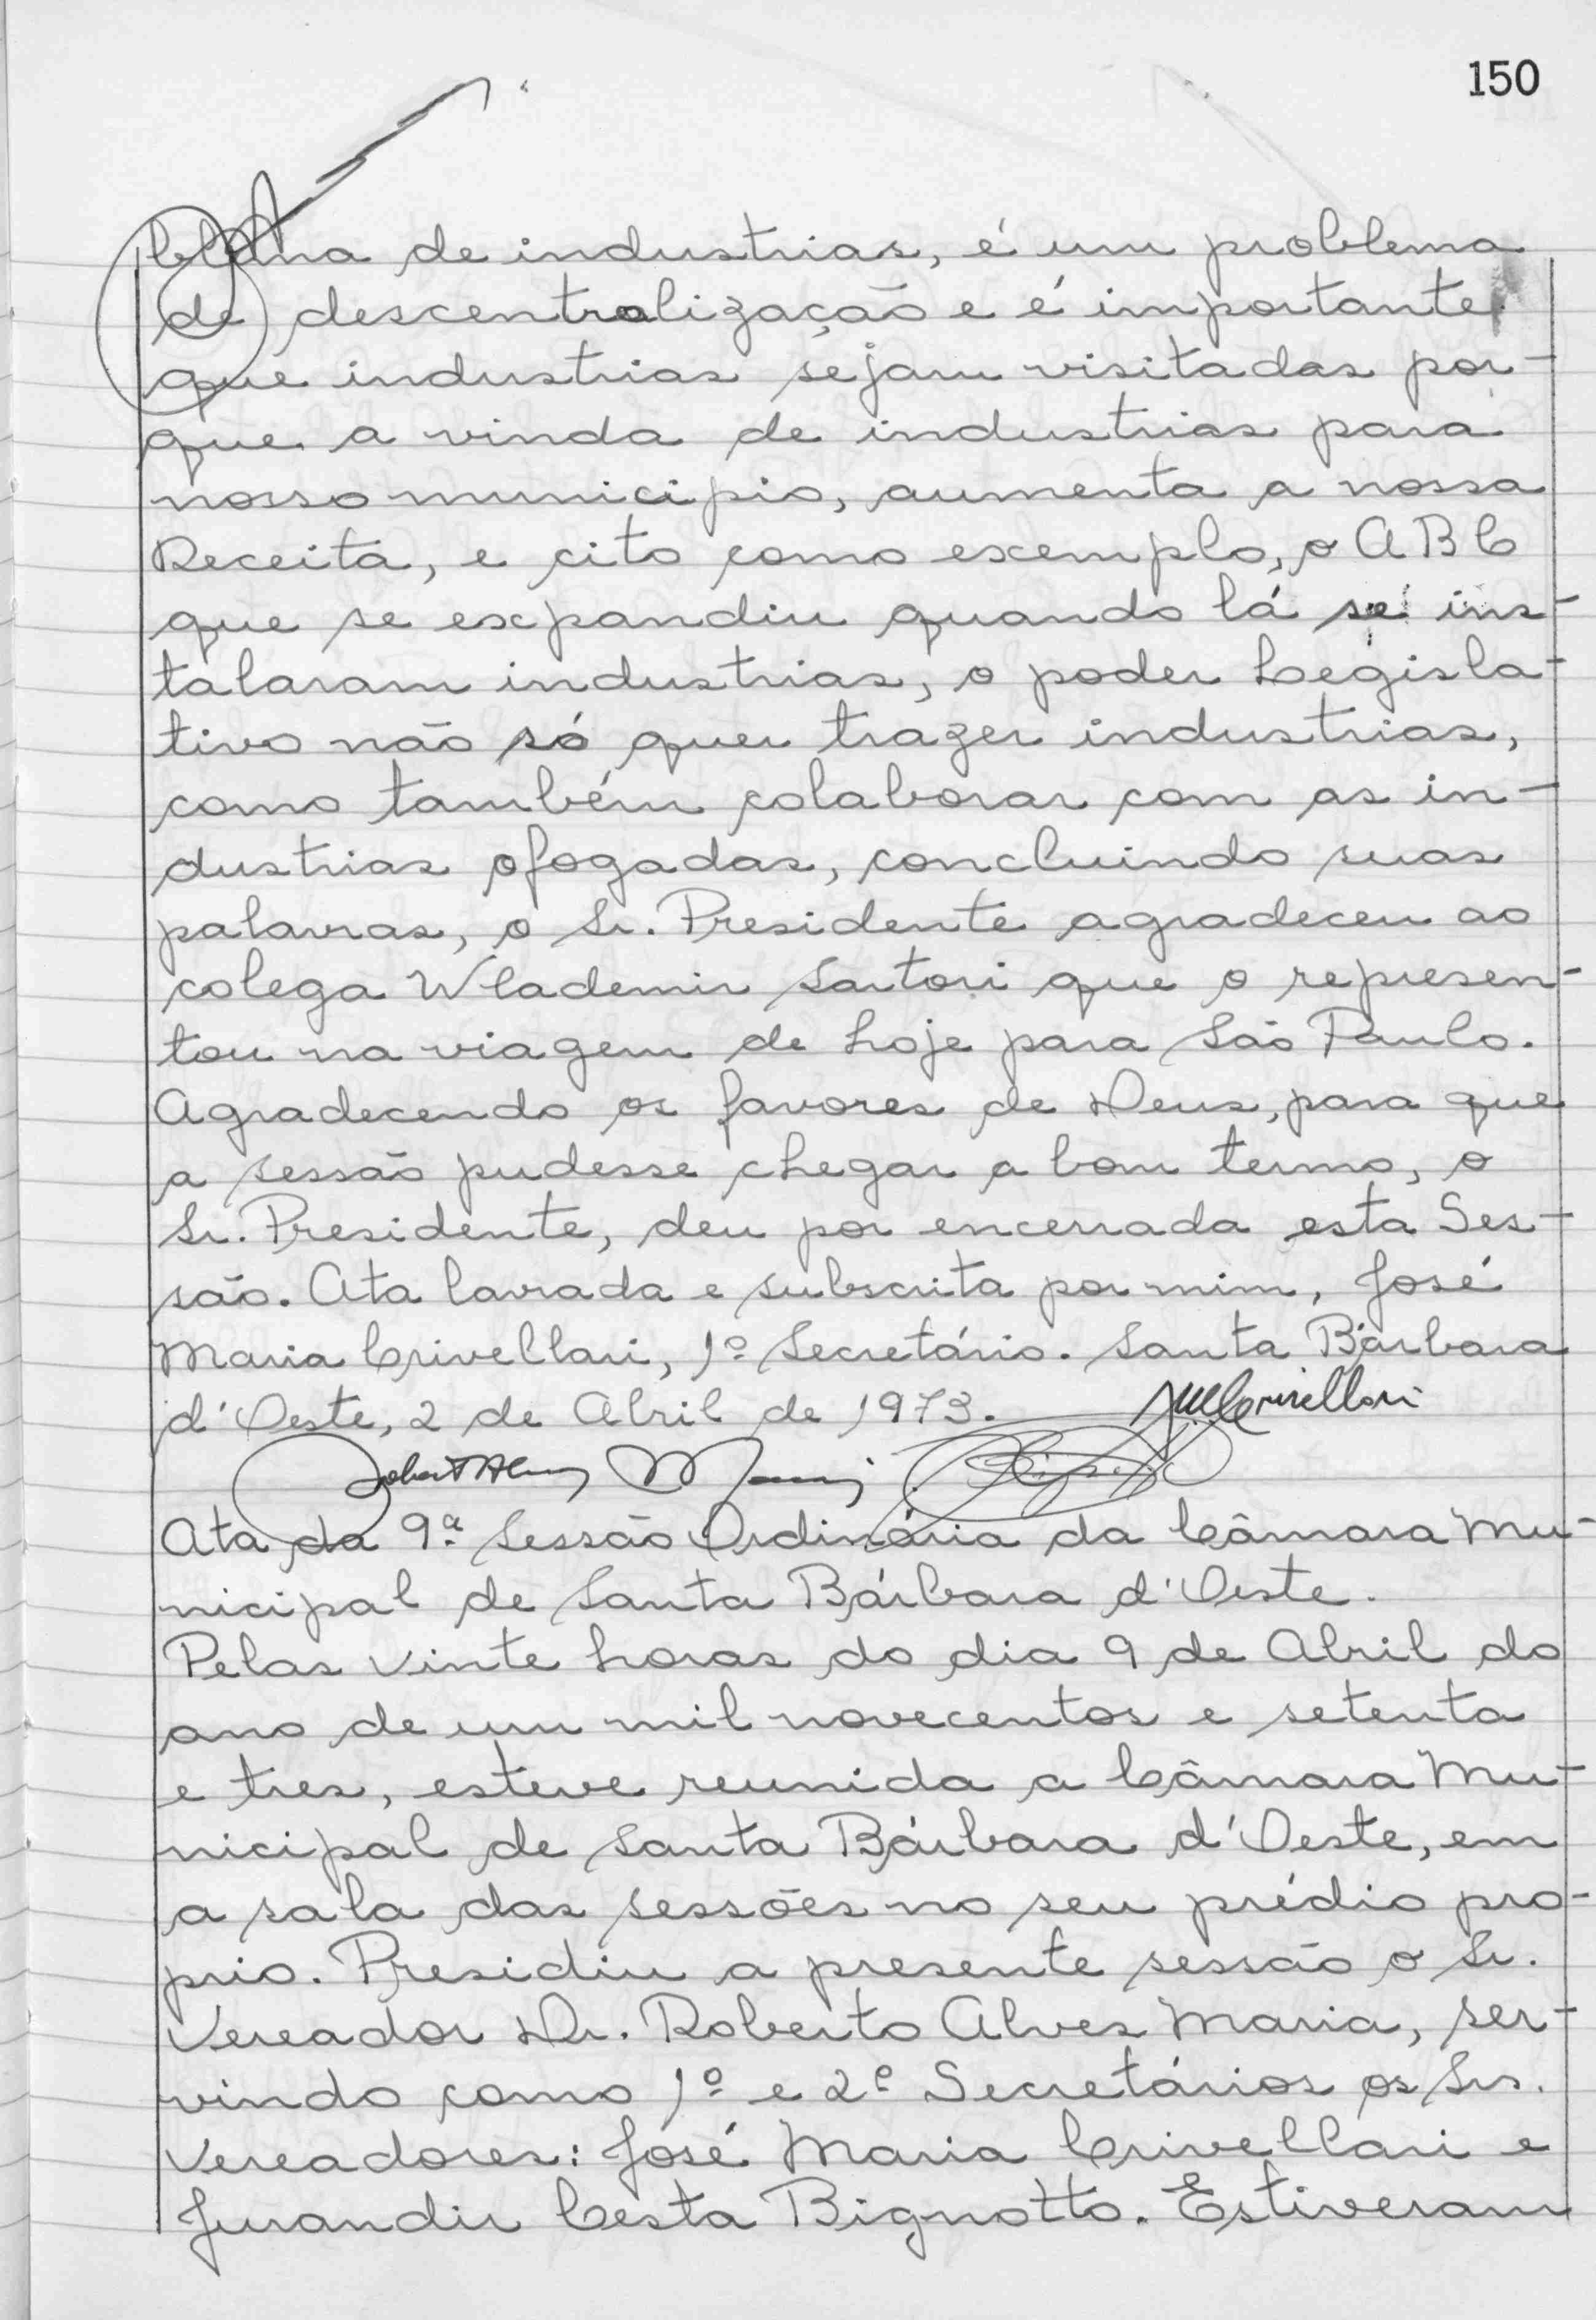 150
blema de industrias, é um problema
de descentralização e é importante
que industrias sejam visitadas por-
que a vinda de industrias para
nosso municipio, aumenta a nossa
Receita, e cito como exemplo, o ABC
que se expandiu quando lá se ins-
talaram industrias, o poder Legisla-
tivo não só quer trazer industrias,
como também colaborar com as in-
dustrias afogadas, concluindo suas
palavras, o Sr. Presidente agradeceu ao
colega Wlademir Sartori que o represen-
tou na viagem de hoje para São Paulo.
Agradecendo os favores de Deus, para que
a sessão pudesse chegar a bom termo, o
Sr. Presidente, deu por encerrada esta Ses-
são. Ata lavrada e subscrita por mim, José
Maria Crivellari, 1º Secretário. Santa Bárbara
d'Oeste, 2 de Abril de 1973. JMCrivellari
Ata da 9ª Sessão Ordinária da Câmara Mu-
nicipal de Santa Bárbara d'Oeste.
Pelas vinte horas do dia 9 de Abril do
ano de um mil novecentos e setenta
e tres, esteve reunida a Câmara Mu-
nicipal de Santa Bárbara d'Oeste, em
a sala das sessões no seu prédio pro-
prio. Presidiu a presente sessão o Sr.
Vereador Dr. Roberto Alves Maria, ser-
vindo como 1º e 2º Secretários os Srs.
Vereadores: José Maria Crivellari e
Jurandir Cesta Bignotto. Estiveram